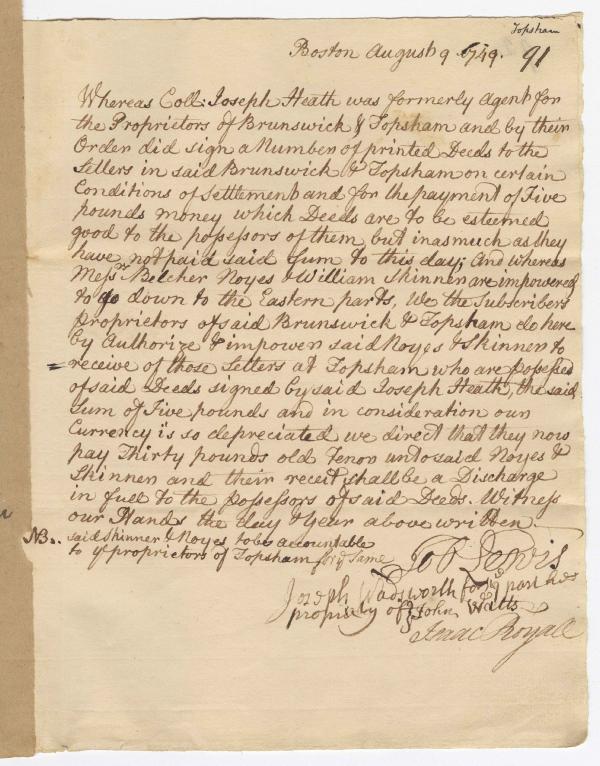 Topsham
Boston August 9 1749. 91
Whereas Coll: Joseph Heath was formerly Agent for
the Proprietors of Brunswick & Topsham and by their
Order did sign a Number of printed Deeds to the
Setlers in said Brunswick & Topsham on certain
Conditions of Settlement and for the payment of Five
pounds money which Deeds are to be esteemed
good to the possessors of them but inasmuch as they
have not paid said Sum to this day; And whereas
Messrs. Belcher Noyes & William Skinner are impowered
to go down to the Eastern parts, We the Subscribers
Proprietors of said Brunswick & Topsham do here
by Authorize & impower said Noyes & Skinner to
receive of those Setlers at Topsham who are possessed
of said Deeds signed by said Joseph Heath, the said
Sum of Five pounds and in consideration our
Currency is so depreciated we direct that they now
pay Thirty pounds old Tenor unto said Noyes &
Skinner and their receit shall be a Discharge
in full to the possessors of said Deeds. Witness
our Hands the day & Year above written.
NB. said Skinner & Noyes to be accountable
to ye proprietors of Topsham for ye Same
Job Lewis
Joseph Wadsworth for ye part
propriety of John Watts
Isaac Royall